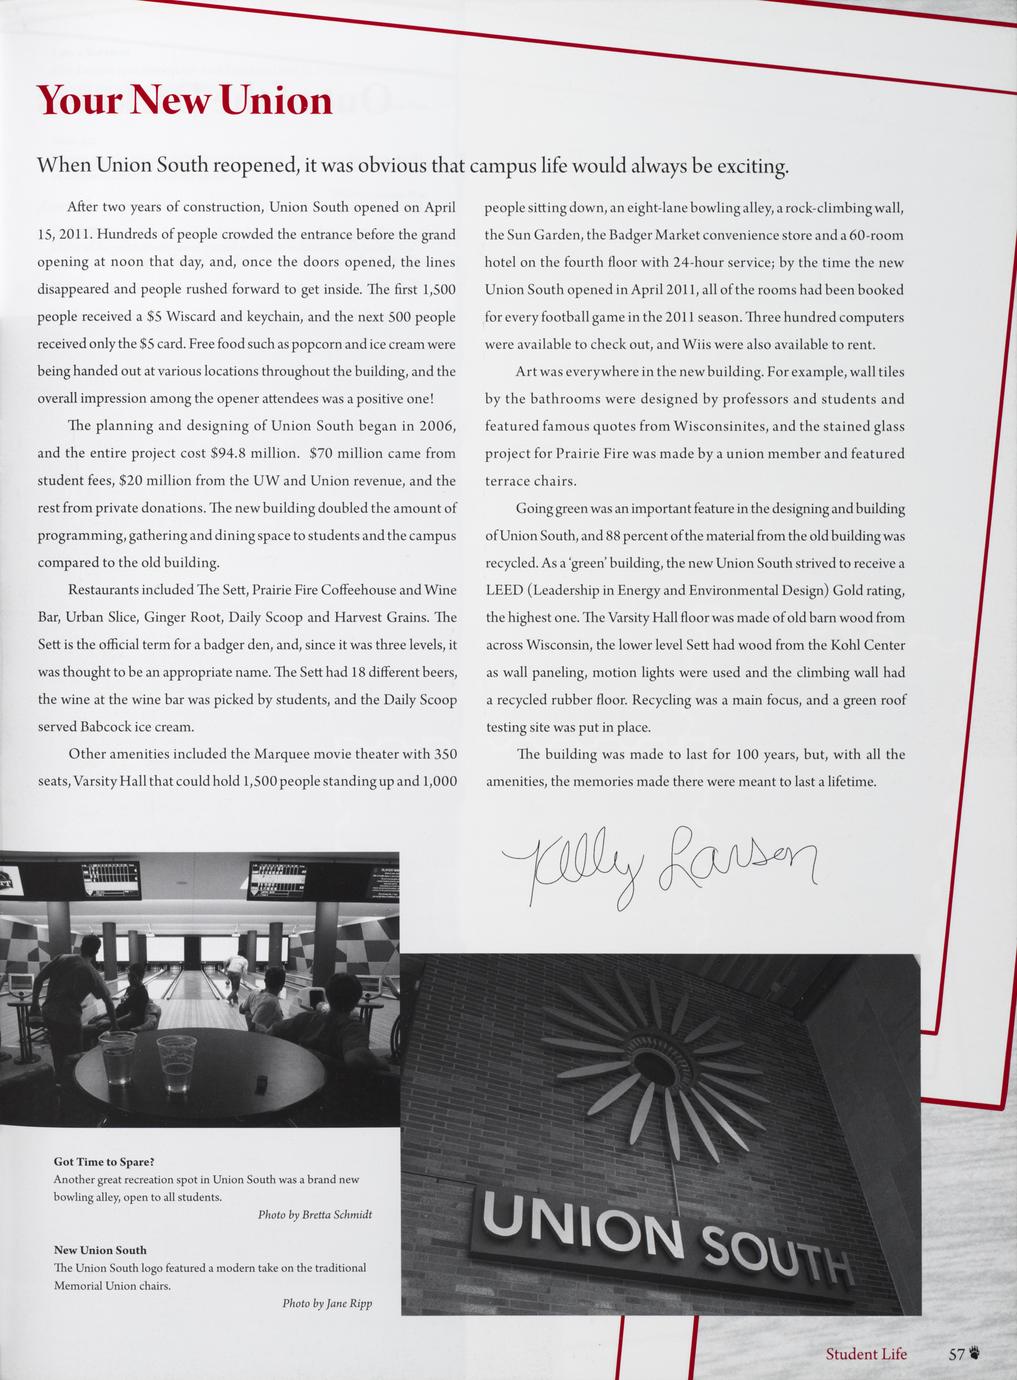 Your New Union
When Union South reopened, it was obvious that campus life would always be exciting.
After two years of construction, Union South opened on April
15, 2011. Hundreds of people crowded the entrance before the grand
opening at noon that day, and, once the doors opened, the lines
disappeared and people rushed forward to get inside. The first 1,500
people received a $5 Wiscard and keychain, and the next 500 people
received only the $5 card. Free food such as popcorn and ice cream were
being handed out at various locations throughout the building, and the
overall impression among the opener attendees was a positive one!
The planning and designing of Union South began in 2006,
and the entire project cost $94.8 million. $70 million came from
student fees, $20 million from the UW and Union revenue, and the
rest from private donations. The new building doubled the amount of
programming, gathering and dining space to students and the campus
compared to the old building.
Restaurants included The Sett, Prairie Fire Coffeehouse and Wine
Bar, Urban Slice, Ginger Root, Daily Scoop and Harvest Grains. The
Sett is the official term for a badger den, and, since it was three levels, it
was thought to be an appropriate name. The Sett had 18 different beers,
the wine at the wine bar was picked by students, and the Daily Scoop
served Babcock ice cream.
Other amenities included the Marquee movie theater with 350
seats, Varsity Hall that could hold 1,500 people standing up and 1,000
people sitting down, an eight-lane bowling alley, a rock-climbing wall,
the Sun Garden, the Badger Market convenience store and a 60-room
hotel on the fourth floor with 24-hour service; by the time the new
Union South opened in April 2011, all of the rooms had been booked
for every football game in the 2011 season. Three hundred computers
were available to check out, and Wiis were also available to rent.
Art was everywhere in the new building. For example, wall tiles
by the bathrooms were designed by professors and students and
featured famous quotes from Wisconsinites, and the stained glass
project for Prairie Fire was made by a union member and featured
terrace chairs.
Going green was an important feature in the designing and building
of Union South, and 88 percent of the material from the old building was
recycled. As a 'green' building, the new Union South strived to receive a
LEED (Leadership in Energy and Environmental Design) Gold rating,
the highest one. The Varsity Hall floor was made of old barn wood from
across Wisconsin, the lower level Sett had wood from the Kohl Center
as wall paneling, motion lights were used and the climbing wall had
a recycled rubber floor. Recycling was a main focus, and a green roof
testing site was put in place.
The building was made to last for 100 years, but, with all the
amenities, the memories made there were meant to last a lifetime.
Kelly Larson
UNION SOUTH
Got Time to Spare?
Another great recreation spot in Union South was a brand new
bowling alley, open to all students.
Photo by Bretta Schmidt
New Union South
The Union South logo featured a modern take on the traditional
Memorial Union chairs.
Photo by Jane Ripp
Student Life 57